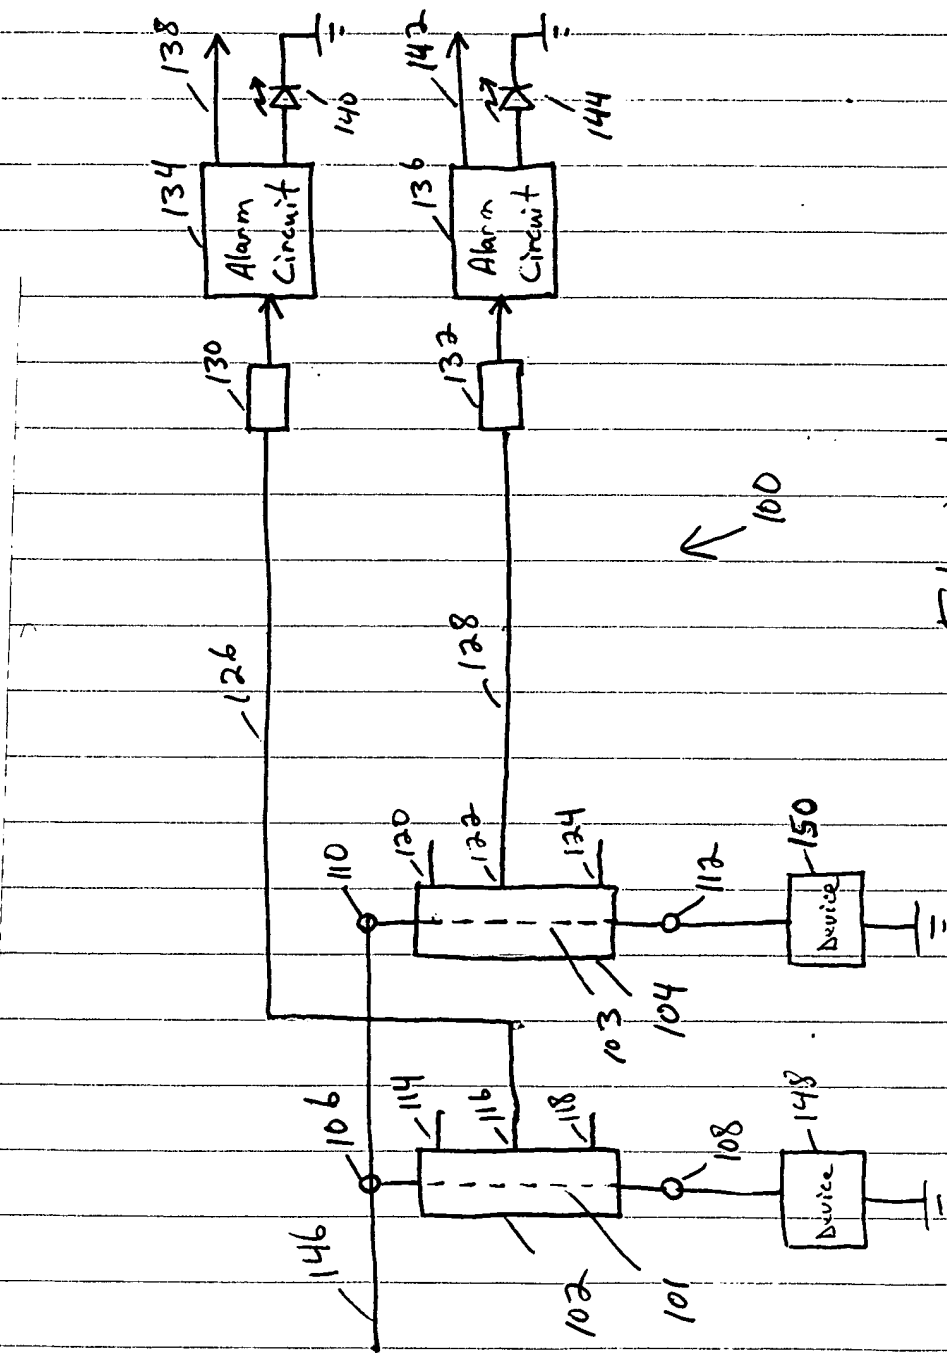 138
140
142
144
134
Alarm
Circuit
136
Alarm
Circuit
130
132
100
126
128
110
120
122
124
112
150
Device
103
104
106
114
116
118
108
148
Device
146
102
101